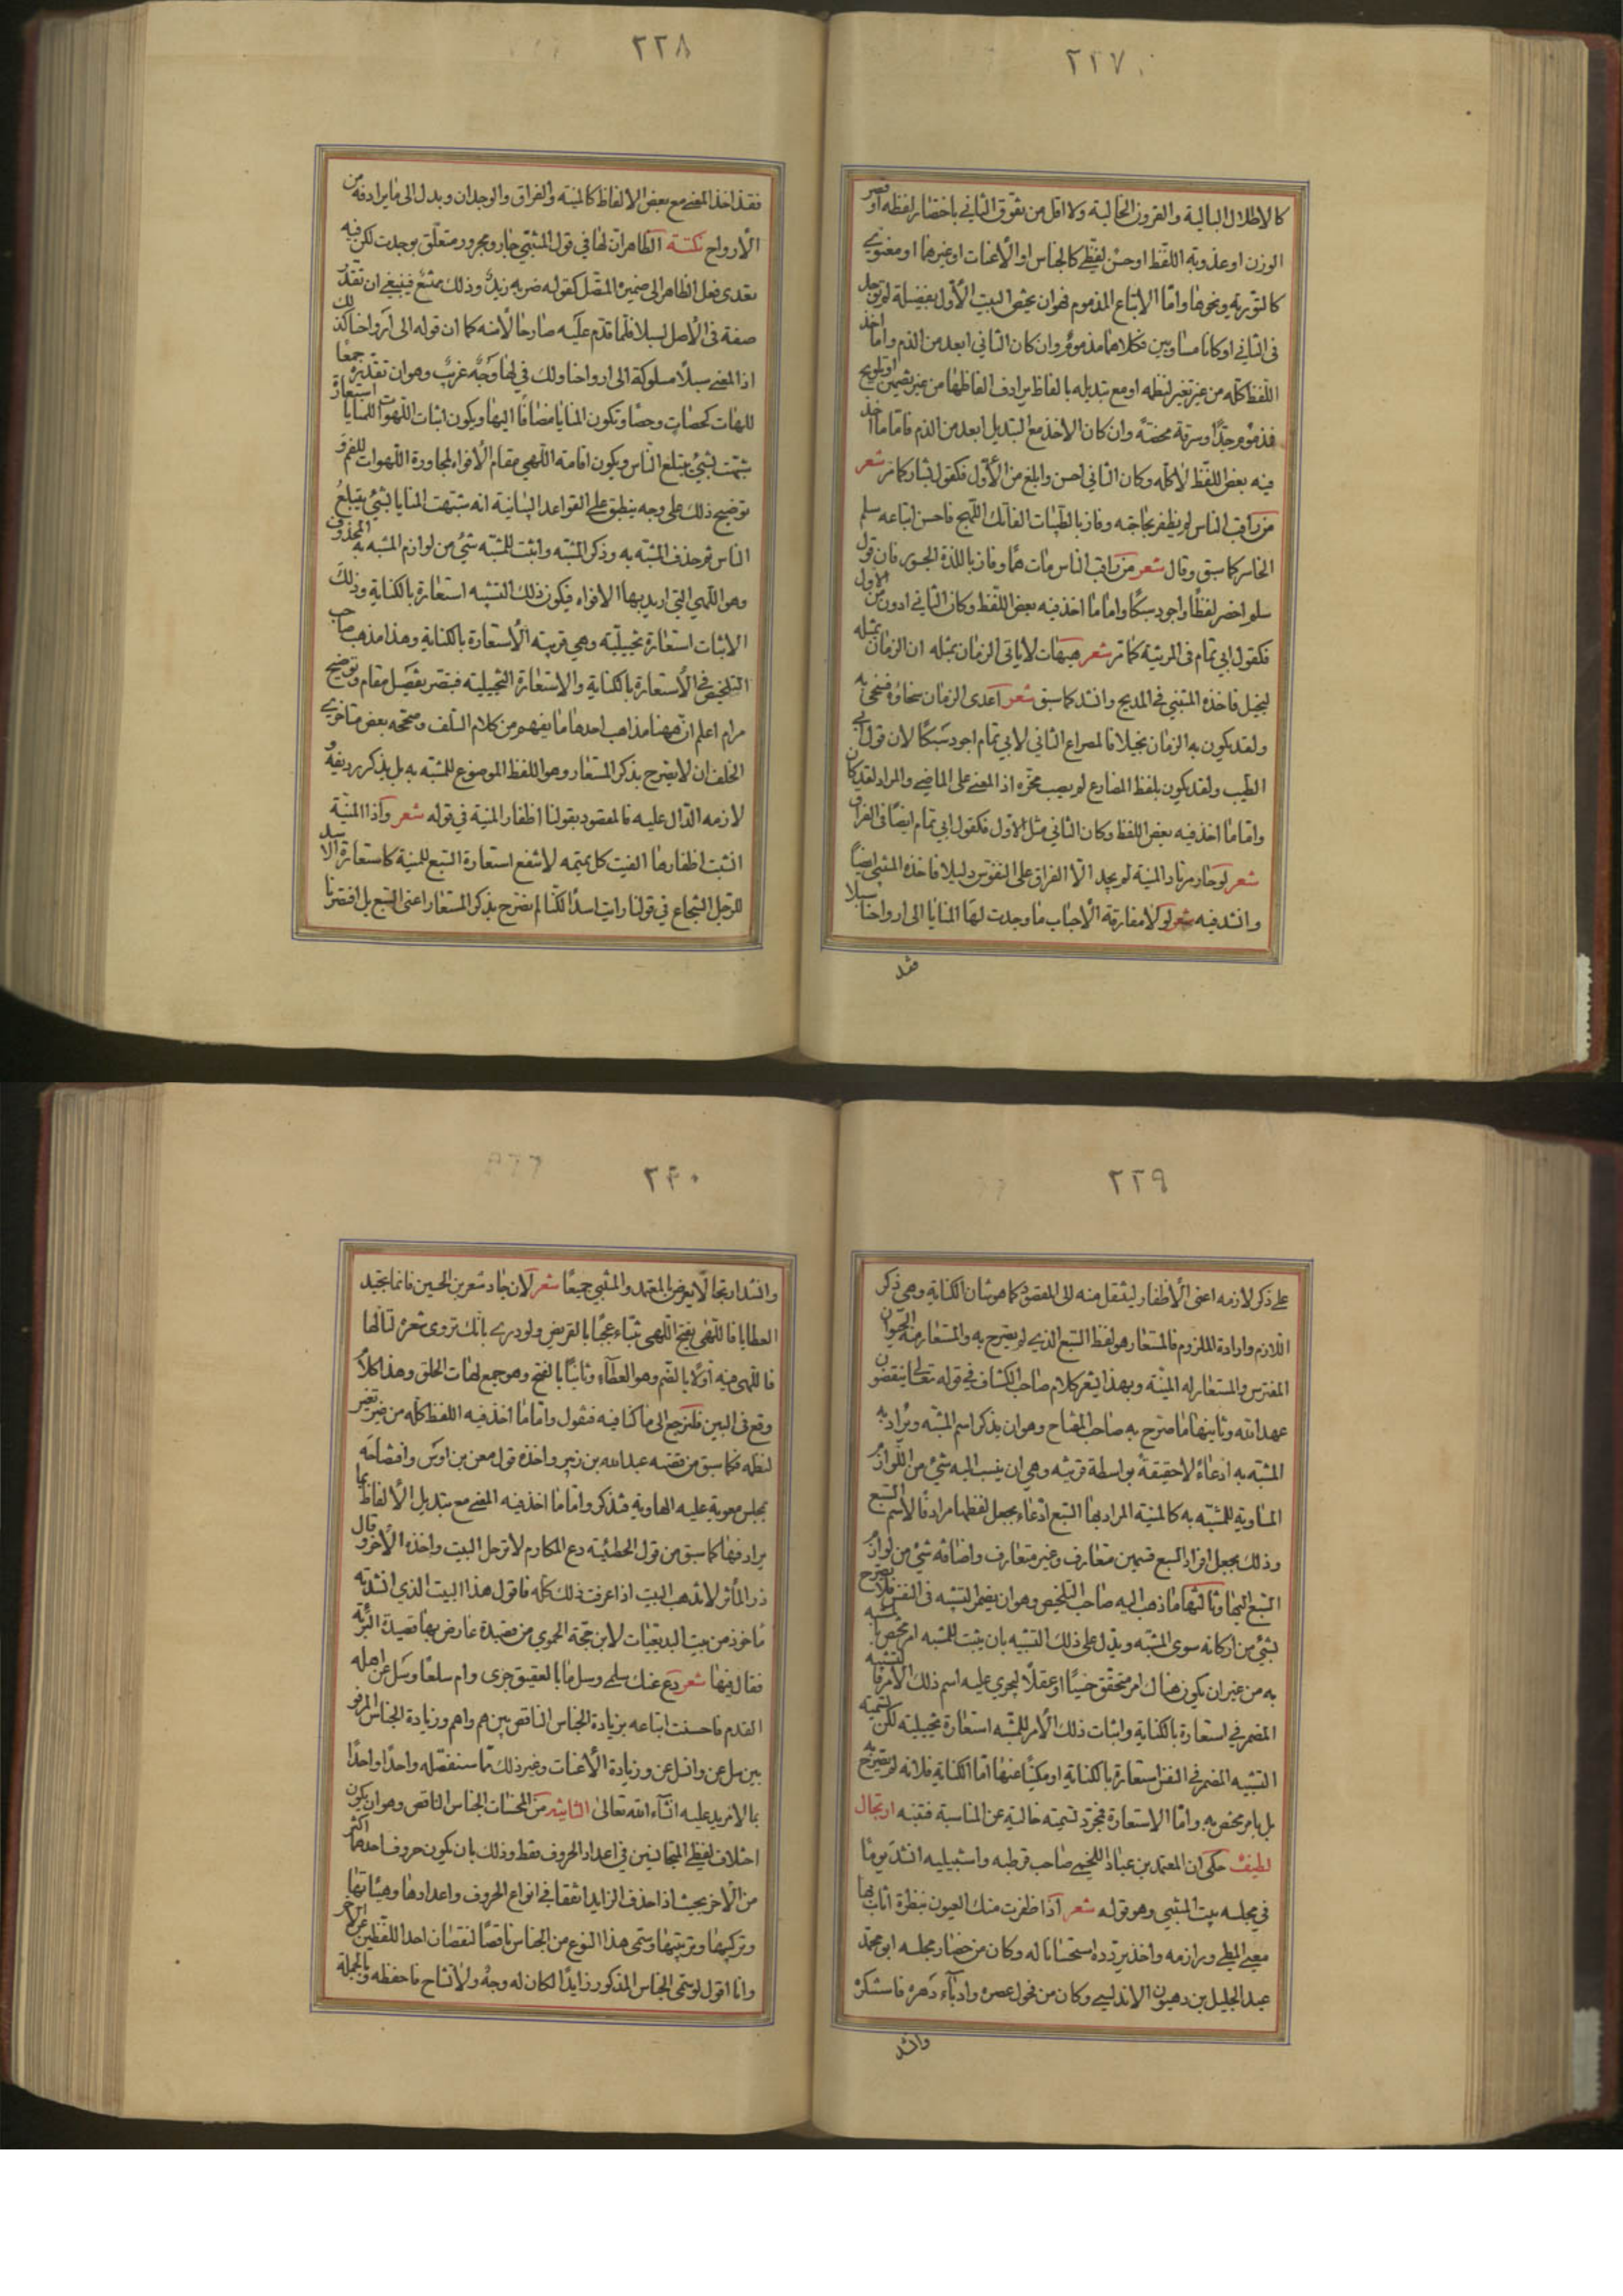 ٢٢٧
كالاطلال البالية والقرون الخالية ولا اقل من تفوق الثاني باختصار لفظه او قصر
الوزن او عذوبة اللفظ او حسن لفظي كالجناس او الاعنات او غيرهما او معنوي
كالتورية ونحوها واما الاتباع المذموم فهو ان يختص البيت الأول بفضيلة لم توجد
في الثاني او كانا متساويين فكلاهما مذموم وان كان الثاني ابعد من الذم واما اخذ
اللفظ كله من غير تغير لنظمه او مع تبديله بالفاظ يرادف الفاظها من غير تضمين او تلويح
فمذموم جدًا وسرقة محضة وان كان الاخذ مع التبديل ابعد من الذم فاما ما اخذ
فيه بعض اللفظ لا كله وكان الثاني احسن وابلغ من الأول فكقول بشار كما مر شعر
من راقب الناس لم يظفر بحاجته وفاز بالطيبات الفاتك اللهج فاحسن اتباعه سلم
الخاسر كما سبق وقال شعر من راقب الناس مات همًا وفاز باللذة الجسور فان قول
سلم اخصر لفظًا واجود سبكًا واما ما اخذ فيه بعض اللفظ وكان الثاني ادون من الاول
فكقول ابي تمام في المرثية كما مر شعر هيهات لا يأتي الزمان بمثله ان الزمان بمثله
لبخيل فاخذه المتنبي في المديح وانشد كما سبق شعر اعدى الزمان سخاؤه فسخى به
ولقد يكون به الزمان بخيلا فالمصراع الثاني لابي تمام اجود سبكًا لان قول ابي
الطيب ولقد يكون بلفظ المضارع لم يصب محزه اذ المعنى على الماضي والمراد لقد كان
واما ما اخذ فيه بعض اللفظ وكان الثاني مثل الاول فكقول ابي تمام ايضًا في الفراق
شعر لو حار مرتاد المنية لم يجد الا الفراق على النفوس دليلا فاخذه المتنبي ايضًا
وانشد فيه شعر لولا مفارقة الاحباب ما وجدت لها المنايا الى ارواحنا سبلا
فقد
٢٢٨
فقد اخذ المعنى مع بعض الالفاظ كالمنية والفراق والوجدان وبدل الى ما يرادفه من
الأرواح نكتة الظاهر ان لها في قول المتنبي جار ومجرور متعلق بوجدت لكن فيه
تعدى فعل الظاهر الى ضميره المتصل كقوله ضربه زيد وذلك ممتنع فينبغي ان تقدر
صفة في الأصل لسبلا فلما قدم عليه صار حالا منه كما ان قوله الى ارواحنا كذلك
اذ المعنى سبلًا مسلوكة الى ارواحنا ولك في لها وجه غريب وهو ان تقديره جمعًا
للهات كحصاة وحصا وتكون المنايا مضافًا اليها ويكون اثبات اللهوات للمنايا استعارة
شبهت بشيء يبتلع الناس ويكون اقامة اللهى مقام الأفواه لمجاورة اللهوات للفم و
توضيح ذلك على وجه ينطبق على القواعد البيانية انه شبهت المنايا بشيء يبتلع
الناس ثم حذف المشبه به وذكر المشبه واثبت للمشبه شيء من لوازم المشبه به المحذوف
وهو اللهى التي اريد بها الافواه فيكون ذلك التشبيه استعارة بالكناية وذلك
الاثبات استعارة تخييلية وهي قرينة الاستعارة بالكناية وهذا مذهب صاحب
التلخيص في الاستعارة بالكناية والاستعارة التخييلية فبتصر بفصيل مقام وتوضيح
مرام اعلم ان ههنا مذاهب احدها ما يفهم من كلام السلف وصححه بعض متاخري
الخلف ان لا يصرح بذكر المستعار وهو اللفظ الموضوع للمشبه به بل يذكر رديفه و
لازمه الدال عليه فالمقصود بقولنا اظفار المنية في قوله شعر واذا المنية
انشبت اظفارها الفيت كل تميمة لا تنفع استعارة السبع للمنية كاستعارة الاسد
للرجل الشجاع في قولنا رايت اسدًا لكنا لم نصرح بذكر المستعار اعني السبع بل اقتصرنا
٢٢٩
على ذكر لازمه اعني الأظفار لينتقل منه الى المقصود كما هو شان الكناية وهي ذكر
اللازم وارادة الملزوم فالمستعار هو لفظ السبع الذي لم يصرح به والمستعار منه الحيوان
المفترس والمستعار له المنية وبهذا يشعر كلام صاحب الكشاف في قوله تعالى ينقضون
عهد الله وثانيها ما صرح به صاحب المفتاح وهو ان يذكر اسم المشبه ويراد به
المشبه به ادعاءً لا حقيقة بواسطة قرينة وهي ان ينسب اليه شيء من اللوازم
المساوية للمشبه به كالمنية المراد بها السبع ادعاء بجعل لفظها مرادفًا لاسم السبع
وذلك بجعل افراد السبع قسمين متعارف وغير متعارف واضافة شيء من لوازم
السبع اليها وثالثها ما ذهب اليه صاحب التلخيص وهو ان يضمر التشبيه في النفس فلا يصرح
بشيء من اركانه سوى المشبه ويدل على ذلك التشبيه بان يثبت للمشبه امر مختص بالمشبه
به من غير ان يكون هناك امر متحقق حسيًا او عقلًا يجري عليه اسم ذلك الامر فالتشبيه
المضمر في استعارة بالكناية واثبات ذلك الأمر للمشبه استعارة تخييلية لكن تسمية
التشبيه المضمر في النفس استعارة بالكناية او مكنيًا عنها اما الكناية فلانه لم يصرح به
بل بامر مختص به واما الاستعارة فمجرد تسمية خالية عن المناسبة فتنبه ارتجال
لطيف حكي ان المعتمد بن عباد اللخمي صاحب قرطبه واشبيليه انشد يومًا
في مجلسه بيت المتنبي وهو قوله شعر اذا ظفرت منك العيون بنظرة اثاب بها
معيي المطي ورازمه واخذ يردده استحسانا له وكان من حضار مجلسه ابو محمد
عبد الجليل بن وهبون الاندلسي وكان من فحول عصره وادباء دهره فاستنكره
وانشد
٢٣٠
وانشد ارتجالًا يعرض المعتمد والمتنبي جميعًا شعر لان جاد شعر بن الحسين فانما تجيد
العطايا فاللهى بفتح اللهى تنباء عجبًا بالقريض ولو درى بانك تروى شعره لتالها
فاللهى منه أولًا بالضم وهو العطاء وثانيًا بالفتح وهو جمع لهات الحلق وهذا كلام
وقع في البين فلنرجع الى ما كنا فيه فنقول واما ما اخذ فيه اللفظ كله من غير تغير
لنظمه فكما سبق من قصة عبد الله بن زبير واخذه قول معن بن اوس وافتضاحه
بمجلس معوية عليه الهاوية فتذكر واما ما اخذ فيه المعنى مع تبديل الألفاظ بما
يرادفها كما سبق من قول الحطيئة دع المكارم لا ترحل البيت واخذه الآخر وقال
ذر المآثر لا تذهب البيت اذا عرفت ذلك كله فاقول هذا البيت الذي انشدته
مأخوذ من بيت البديعيات لابن حجة الحموي من قصيدة عارض بها قصيدة البردة
فقال فيها شعر دع عنك سلمى وسل ما بالعقيق جرى وام سلعًا وسل عن اهله
القدم فاحسنت اتباعه بزيادة الجناس الناقص بين هم واهم وزيادة الجناس المرفو
بين سل عن وانسل عن وزيادة الأعنات وغير ذلك مما سنفصله واحدًا واحدًا
بما لا مزيد عليه انشاء الله تعالى الثانية من المحسنات الجناس الناقص وهو ان يكون
اختلاف لفظي المتجانسين في اعداد الحروف فقط وذلك بان يكون حروف احدهما اكثر
من الآخر بحيث اذا حذف الزايد اتفقا في انواع الحروف واعدادها وهيئاتها
وتركيبها وترتيبها وسمى هذا النوع من الجناس ناقصًا لنقصان احد اللفظين عن الآخر
وانا اقول لو سمى الجناس المذكور زايدًا لكان له وجه ولا مشاح فاحفظه وبالجملة